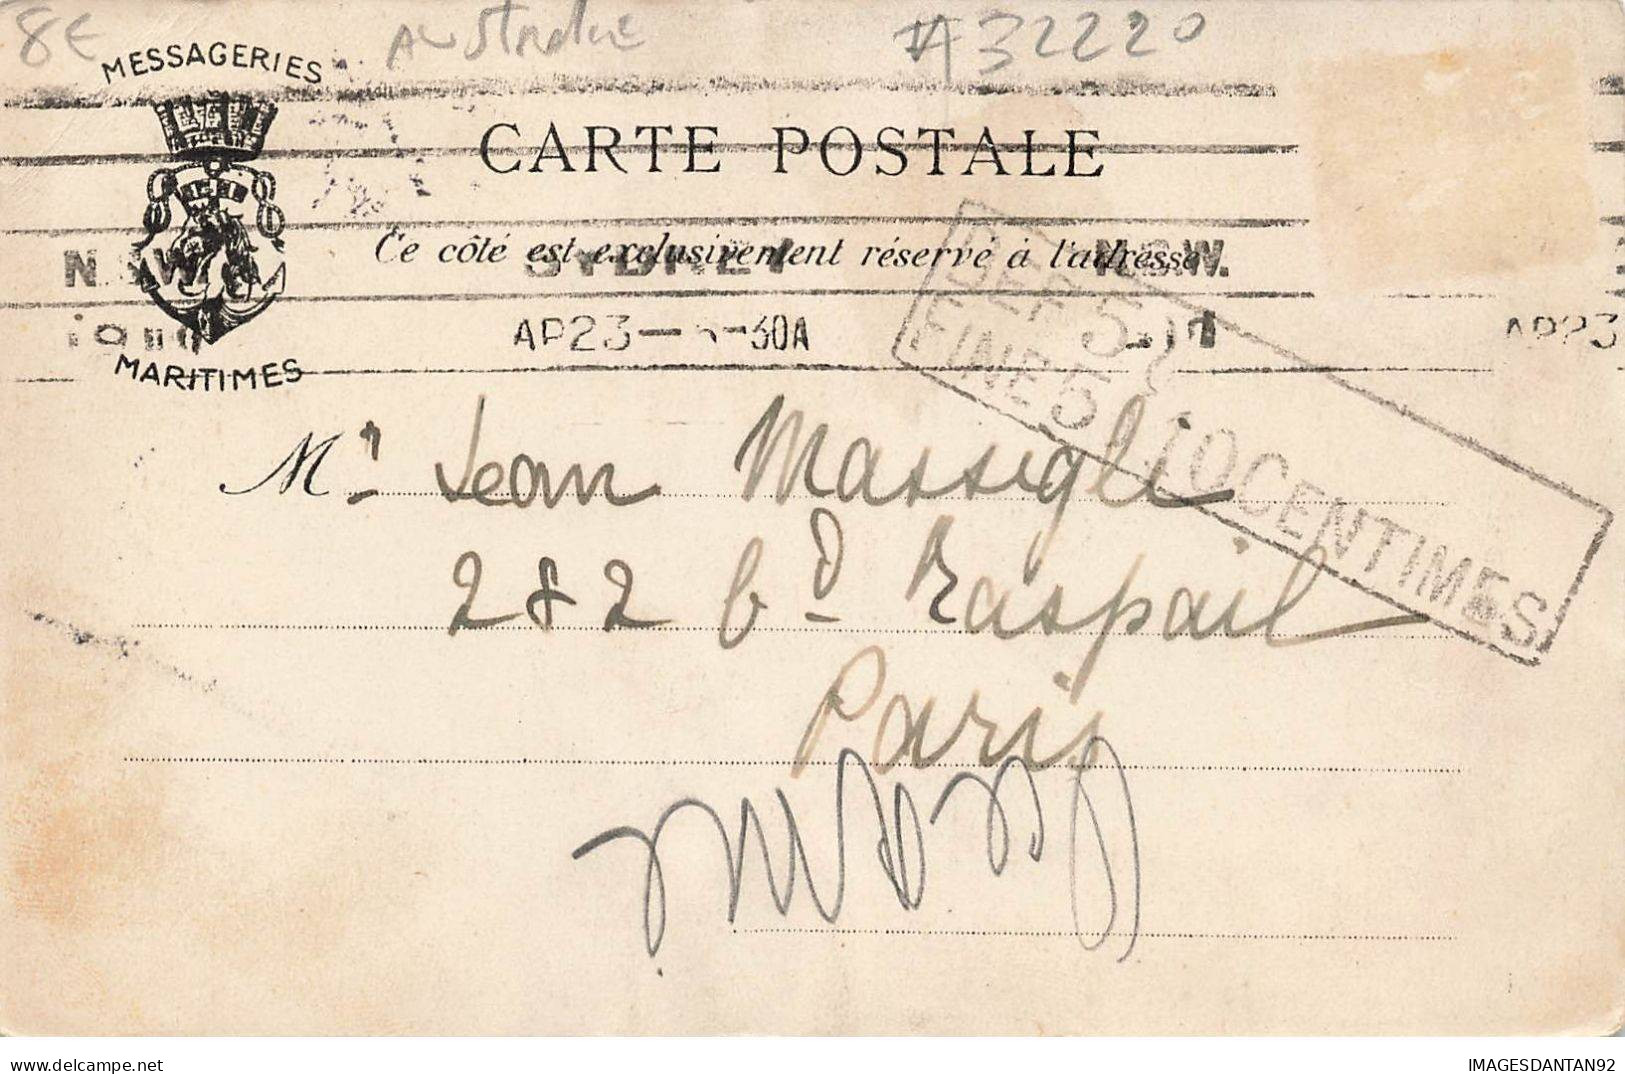 8€ Australie #32220
MESSAGERIES
CARTE POSTALE
Ce côté est exclusivement réservé à l'adresse
N.S.W. SYDNEY N.S.W.
AP23 — 30A AP23
MARITIMES
DEF. 5
FINE 5 10 CENTIMES
Mr Jean Massigli
282 bd Raspail
Paris
IMAGESDANTAN92